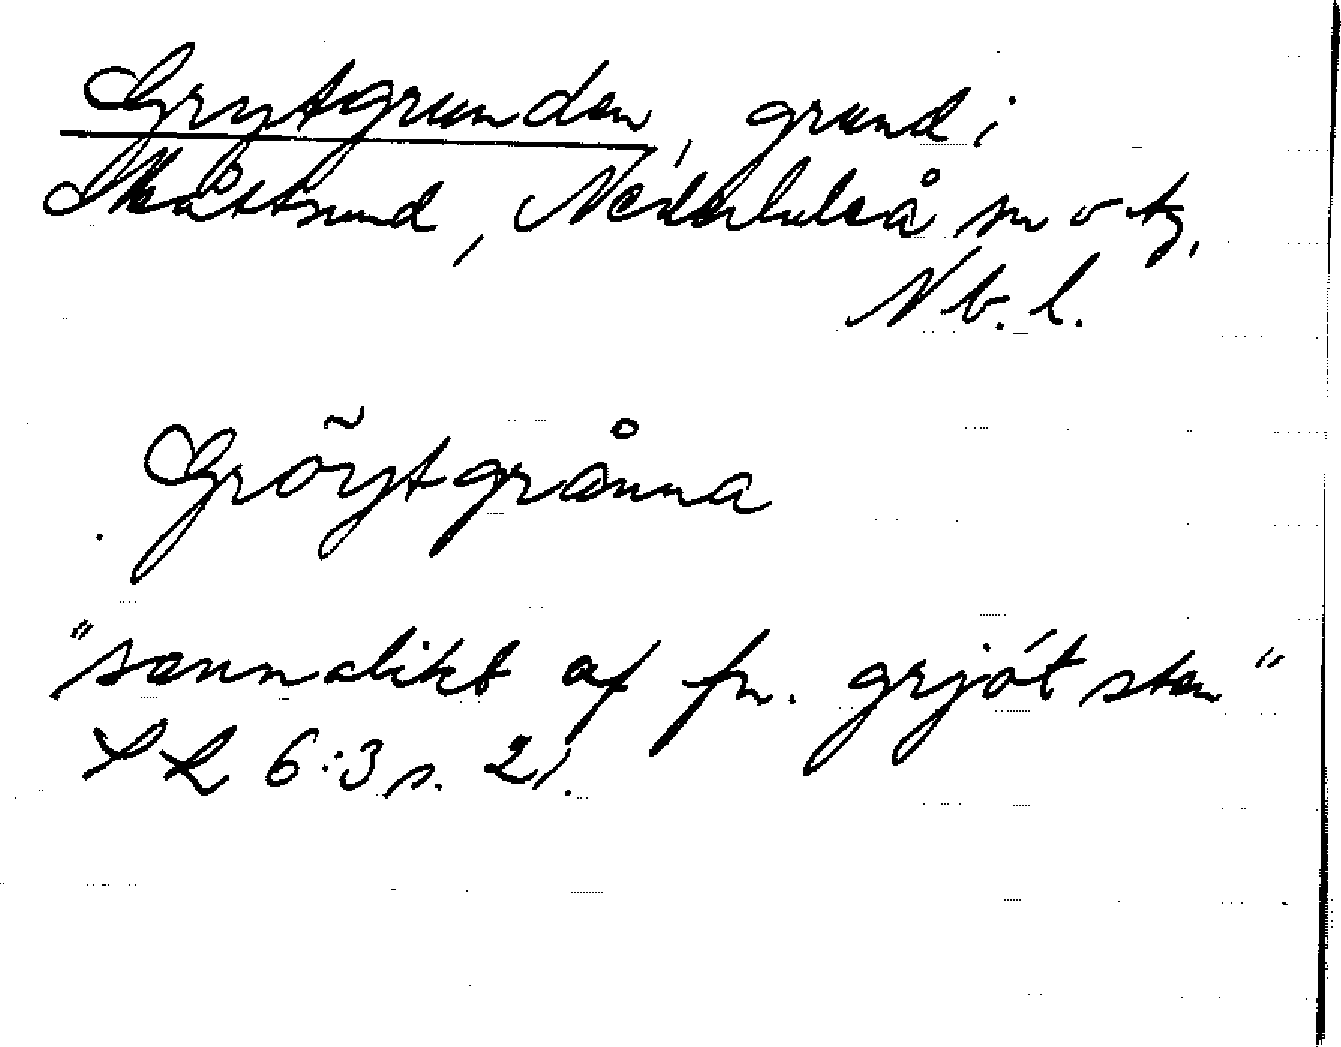 Grytgrunden, grund i
Skåtsund, Nederluleå sn o tg,
Nb. l.
Grõytgrånna
"sannolikt af fn. grjót sten"
6:3 s. 21.